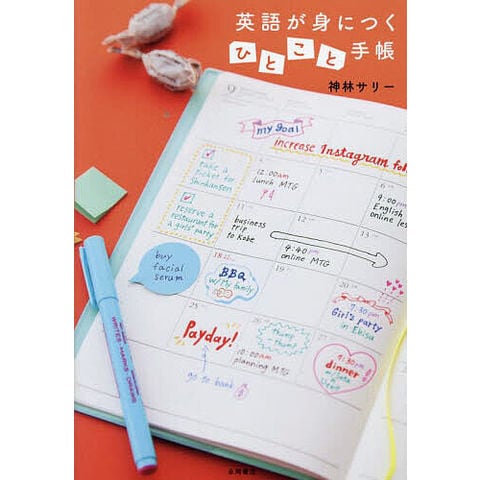 英語が身につく
ひとこと手帳
神林サリー
9
my goal
increase Instagram fol
take a
ticket for
Shinkansen
reserve a
restaurant for
a girls' party
12:00am
lunch MTG
9:00pm
English
online les
business
trip
to Kobe
4:40pm
online MTG
buy
facial
serum
BBQ
w/My family
7:30pm
Girl's party
in Ebisu
Payday!
go to bank
10:00am
planning MTG
thump
thump
9:30pm
dinner
永岡書店